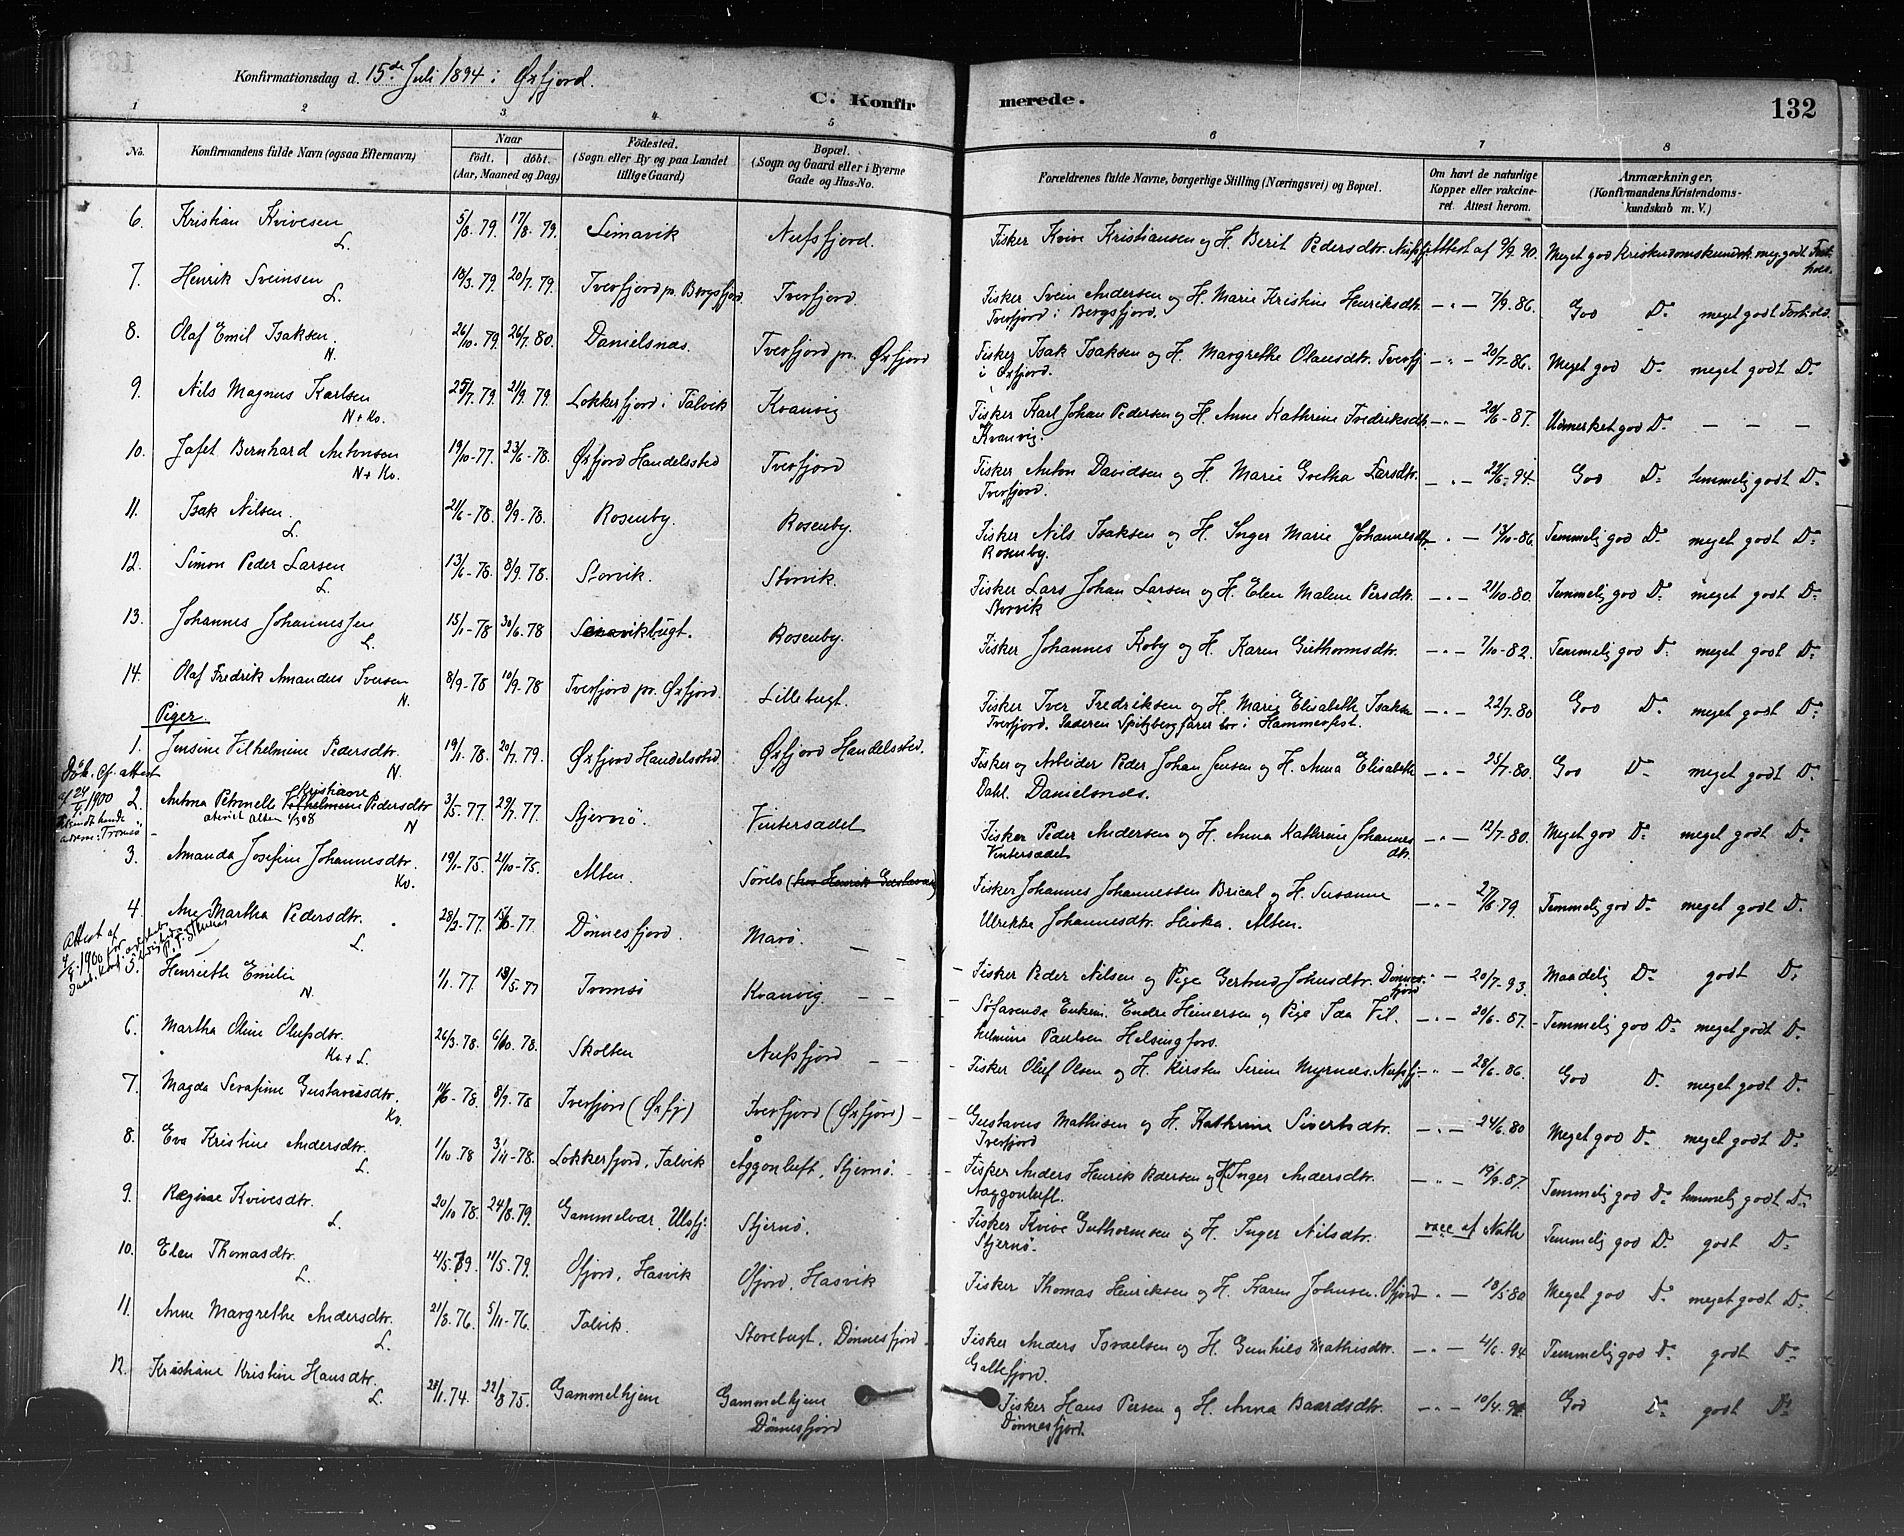 Konfirmationsdag d. 15de Juli 1894 i Øxfjord.
C. Konfirmerede.
132
1 2 3 4 5 6 7 8
No. Konfirmandens fulde Navn (ogsaa Efternavn) Naar født. døbt. (Aar, Maaned og Dag) Fødested. (Sogn eller By og paa Landet tillige Gaard) Bopæl. (Sogn og Gaard eller i Byerne Gade og Hus-No. Forældrenes fulde Navne, borgerlige Stilling (Næringsvei) og Bopæl. Om havt de naturlige Kopper eller vakcineret. Attest herom. Anmærkninger, (Konfirmandens Kristendomskundskab m. V.)
6. Kristian Kvivesen L. 5/8. 79. 17/8. 79. Simavik Nufsfjord. Fisker Kvive Kristiansen og H. Berit Pedersdtr. Nufsfj. Attest af 9/9. 90. Meget god Kristendomskundsk. meg. godt Forhold.
7. Henrik Sveinsen L. 18/3. 79. 20/7. 79. Tverfjord pr. Bergsfjord Tverfjord. Fisker Svein Andersen og H. Marie Kristine Henriksdtr. Tverfjord i Bergsfjord. - " - 7/9. 86. God Do meget godt Forhold.
8. Olaf Emil Isaksen. N. 26/10. 79. 26/7. 80. Danielsnæs. Tverfjord pr. Øxfjord Fisker Isak Isaksen og H. Margrethe Olausdtr. Tverfj. i Øxfjord. - " - 20/7. 86. Meget god Do meget godt Do
9. Nils Magnus Karlsen N + Kv. 25/7. 79. 21/9. 79. Lokkerfjord i Talvik Kvanvig Fisker Karl Johan Pedersen og H. Anne Kathrine Fredriksdtr. Kvanvig. - " - 20/6-87. Udmerket god Do - - -
10. Jafet Bernhard Antonsen N + Kv. 19/10-77. 23/6-78. Øxfjord Handelssted Tverfjord Fisker Anton Davidsen og H. Marie Gretha Larsdtr. Tverfjord. - " - 22/6-94. God Do temmelig godt Do
11. Isak Nilsen. L. 21/6-78. 8/9-78. Rosenby. Rosenby. Fisker Nils Isaksen og H. Inger Marie Johannesdtr. Rosenby. - " - 13/10-86. Temmelig god Do meget godt Do
12. Simon Peder Larsen L. 13/6-78. 8/9. 78. Storvik. Storvik. Fisker Lars Johan Larsen og H. Elen Malene Persdtr. Storvik - " - 21/10-80. Temmelig god Do meget godt Do
13. Johannes Johannessen L. 15/1-78 30/6. 78 Rosenby. Fisker Johannes Koby og H. Karen Guthormsdtr. - " - 7/10-82. Temmelig god Do meget godt Do
14. Olaf Fredrik Amandus Iversen N. 8/9-78 10/9-78 Tverfjord pr. Øxfjord. Lillebugt. Fisker Iver Fredriksen og H. Marie Elisabeth Isaksen Tverfjord. Faderen Spitzbergfarer bor i Hammerfest. - " - 22/7. 80 God Do meget godt Do
Piger.
1. Jensine Vilhelmine Pedersdtr. N. 19/1. 78. 20/7. 79. Øxfjord Handelssted Øxfjord Handelssted. Fisker og Arbeider Peder Johan Jensen og H. Anna Elisabeth Dahl. Danielsnæs. - " - 25/7. 80. God Do meget godt Do
2. Antona Petronelle Kristiane Pedersdtr N 3/5. 77 29/7. 77 Stjernø. Vintersædet Fisker Peder Andersen og H. Anna Kathrine Johannesdtr. Vintersædet - " - 12/7. 80. Meget god Do meget godt Do
3. Amanda Josefine Johannesdtr. Kv. 19/1-75. 21/10-75. Alten. Fisker Johannes Johannessen Brical og H. Susanne Ulrikke Johannesdtr. Hioka. Alten. - " - 27/8 79. Temmelig god Do meget godt Do
4. Ane Martha Pedersdtr. L. 28/2-77. Dønnesfjord. Marø. Fisker Peder Nilsen og Pige Gertrud Johnsdtr. Dønnesfjord - " - 20/7-93. Maadelig Do godt Do
5. Henriette Emilie N. 1/1. 77. 13/5. 77 Tromsø Kvanvig Søfarende Endre Heinersen og Pige Ida Vilhelmine Paulsen Helsingfors. - " - 20/6-87. Temmelig god Do meget godt Do
6. Martha Oline Olufsdtr. Kv. + L. 26/3. 78. 6/10. 78. Skolten Nufsfjord Fisker Oluf Olsen og H. Kirsten Serine Myrnes. Nufsfj. - " - 28/6. 86. God Do meget godt Do
7. Magda Serafine Gustavusdtr. Kv. 11/6-78. 8/9. 78 Tverfjord (Øxfj) Tverfjord (Øxfjord) Gustavus Mathisen og H. Kathrine Sivertsdtr. Tverfjord - " - 24/6. 80 Meget god Do meget godt Do
8. Eva Kristine Andersdtr. L. 1/10. 78 3/11-78. Lokkerfjord, Talvik Aaggonluft, Stjernø. Fisker Anders Henrik Pedersen og H. Inger Andersdtr. Aaggonluft. - " - 19/9. 87. Temmelig god Do temmelig godt Do
9. Regine Kvivesdtr. L. 20/10 78. 24/8. 79. Gammelvær, Ulsfj. Stjernø. Fisker Kvive Guthormsen og H. Inger Nilsdtr. Stjernø. vacc af Temmelig god Do godt Do
10. Elen Thomasdtr. L. 4/5. 79. 11/5. 79. Ofjord, Hasvik Ofjord, Hasvik Fisker Thomas Henriksen og H. Karen Johnsen. Ofjord - " - 18/5 80 Meget god Do meget godt Do
11. Anne Margrethe Andersdtr. L. 21/8. 76. 5/11-76. Talvik. Storebugt, Dønnesfjord Fisker Anders Israelsen og H. Gunhild Mathisdtr. Galtefjord. - " - 4/6. 94 Temmelig god Do godt Do
12. Kristiane Kristine Hansdtr. L. 28/1. 74. 22/8 75. Gammelhjem Gammelhjem Dønnesfjord Fisker Hans Persen og H. Anna Baardsdtr. Dønnesfjord. - " - 10/4. 91 God Do godt Do